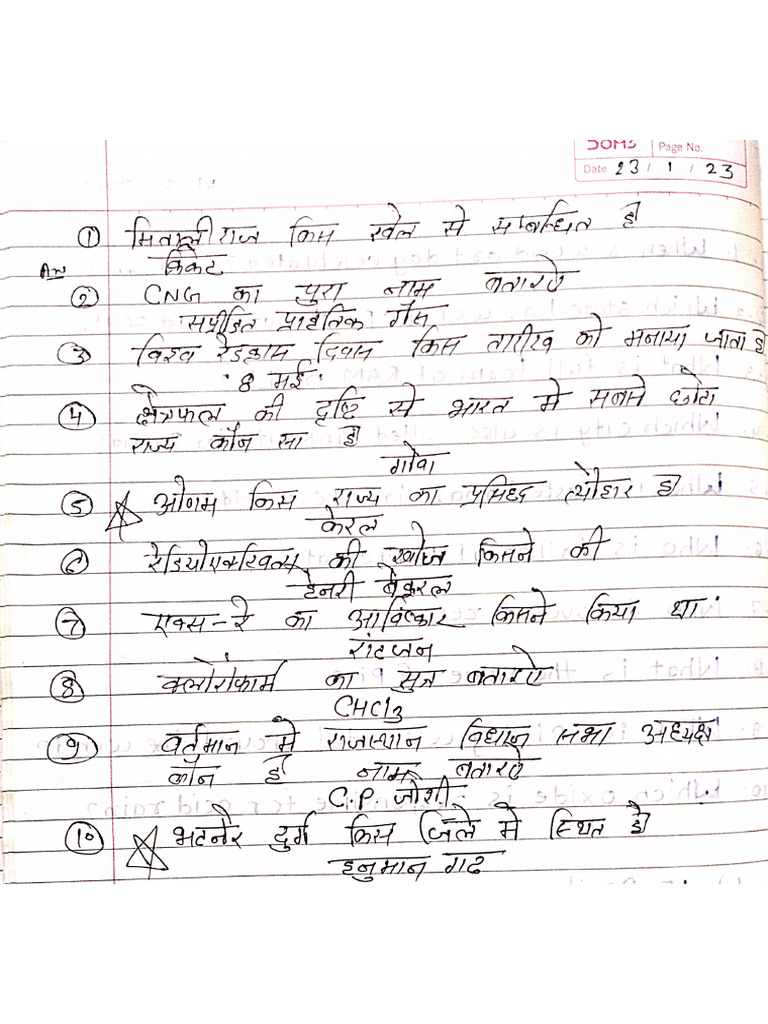 Page No.
Date 23 / 1 / 23
① मिताली राज किस खेल से सम्बन्धित है
Ans क्रिकेट
② CNG का पुरा नाम बताऐ
सपीडित प्राकृतिक गैस
③ विश्व रेडक्रास दिवस किस तारीख को मनाया जाता है
8 मई
④ क्षेत्रफल की दृष्टि से भारत मे सबसे छोटा
राज्य कौन सा है
गोवा
⑤ ओणम किस राज्य का प्रसिध्द त्यौहार है
केरल
⑥ की खोज किसने की
हेनरी बेकुरल
⑦ एक्स-रे का आविष्कार किसने किया था
रांटजन
⑧ क्लोरोफार्म का सुत्र बताऐ
CHCl3
⑨ वर्तमान मे राजस्थान विधान सभा अध्यक्ष
कौन है नाम बताऐ
C.P जोशी
⑩ भटनेर दुर्ग किस जिले मे स्थित है
हनुमान गढ